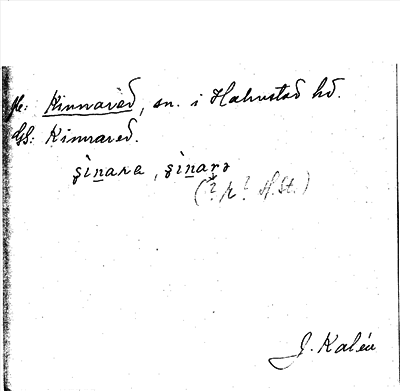 fe: Kinnared, sn. i Halmstad hd.
GS: Kinnared.
şìnara, şìnarə
(? r? H.St.)
J. Kalén